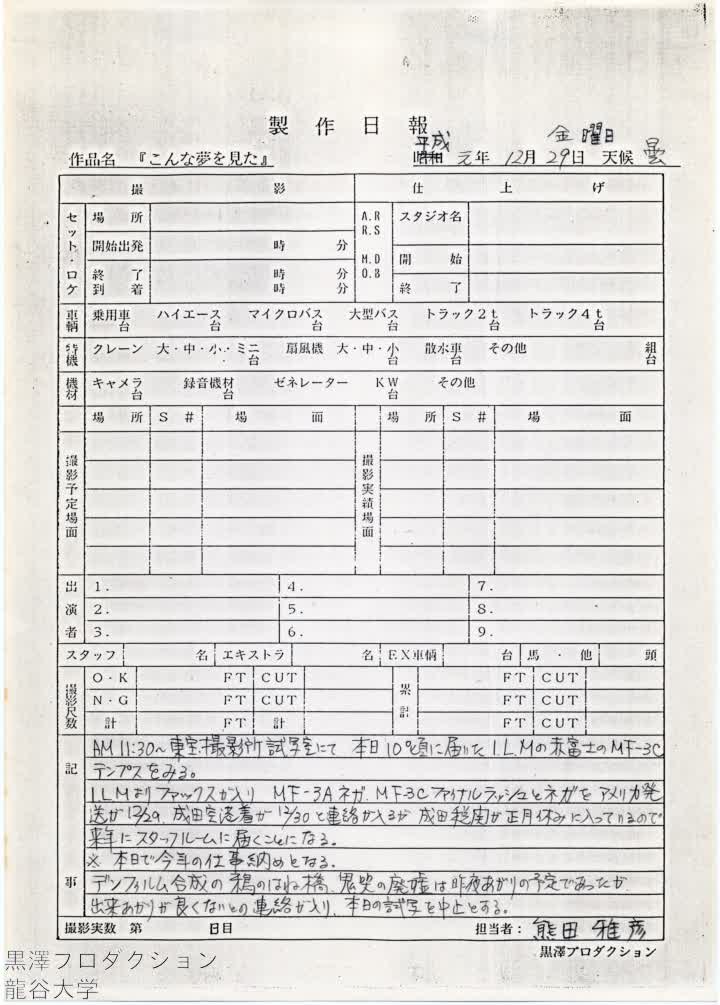 製作日報
作品名 『こんな夢を見た』 昭和 平成 元年 12月 29日 金曜日 天候 曇
撮影 仕上げ
セット・ロケ 場所 A.R R.S M.D O.B スタジオ名
開始出発 時 分 開始
終了 時 分 終了
到着 時 分
車輌 乗用車 台 ハイエース 台 マイクロバス 台 大型バス 台 トラック2t 台 トラック4t 台
特機 クレーン 大・中・小・ミニ 台 扇風機 大・中・小 台 散水車 台 その他 組 台
機材 キャメラ 台 録音機材 台 ゼネレーター KW 台 その他
撮影予定場面 場所 S# 場面 撮影実績場面 場所 S# 場面
出演者 1. 4. 7.
2. 5. 8.
3. 6. 9.
スタッフ 名 エキストラ 名 EX車輌 台 馬・他 頭
撮影尺数 O・K FT CUT 累計 FT CUT
N・G FT CUT FT CUT
計 FT 計 FT CUT
記事
AM11:30~東宝撮影所試写室にて 本日10°頃に届いたI.L.Mの赤富士のMF-3C
テンプスをみる。
I L MよりファックスがありMF-3Aネガ、MF3Cファイナルラッシュとネガをアメリカ発
送が12/29、成田空港着が12/30と連絡が入るが成田税関が正月休みに入っているので
来年にスタッフルームに届くことになる。
※ 本日で今年の仕事納めとなる。
デンフィルム合成の鴉のはね橋、鬼哭の廃墟は昨夜あがりの予定であったが
出来あがりが良くないとの連絡が入り、本日の試写を中止とする。
撮影実数 第 日目 担当者: 熊田雅彦
黒澤プロダクション
黒澤プロダクション
龍谷大学